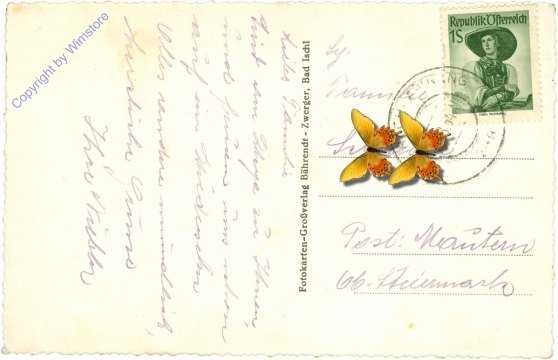 Copyright by Wimstore
Liebe Familie
Sind am Wege zu Ihnen,
und freuen uns schon
auf ein Wiedersehen
Alles andere mündlich,
Herzliche Grüsse
Ihre
Fotokarten-Großverlag Bährendt - Zwerger, Bad Ischl
Republik Österreich
1S
Familie
Post: Mautern
Ob. Steiermark